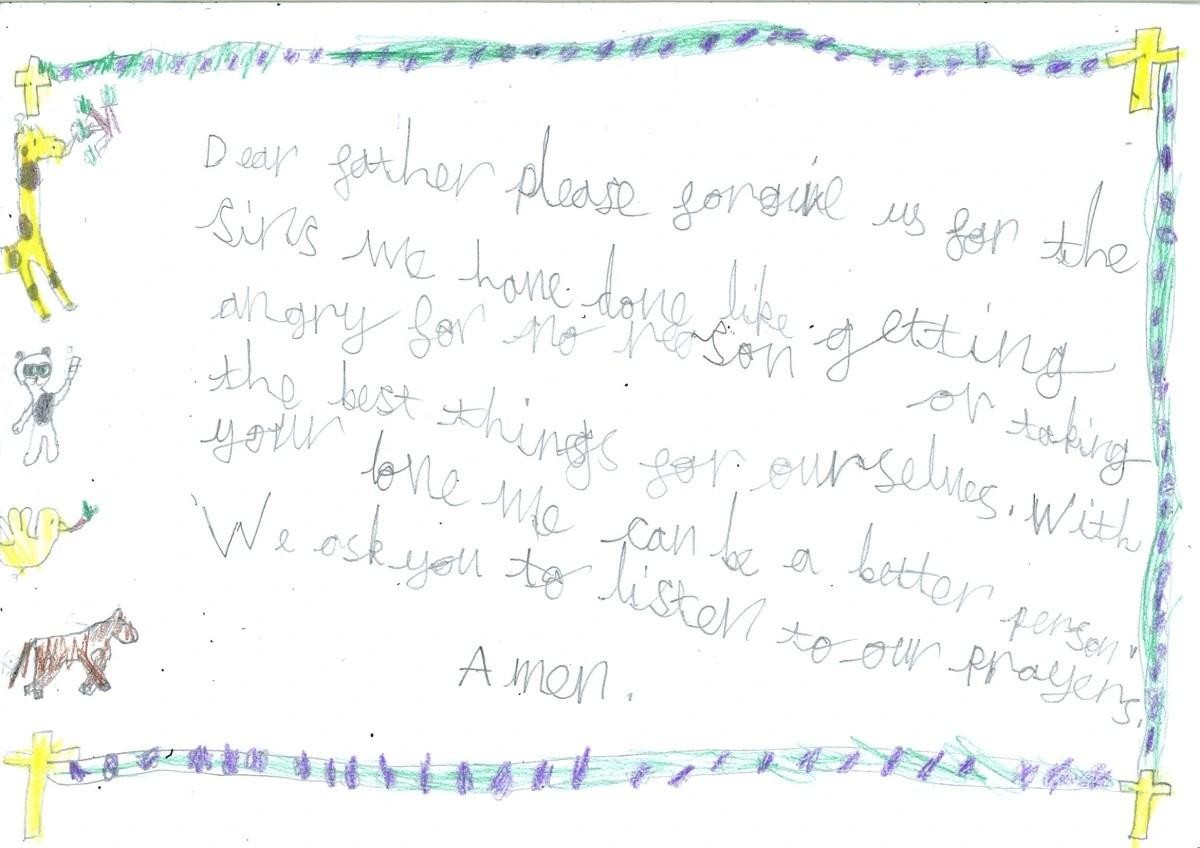 Dear father please forgive us for the
sins we have done like getting
angry for no reason or taking
the best things for ourselves. With
your love we can be a better person.
We ask you to listen to our prayers.
Amen.